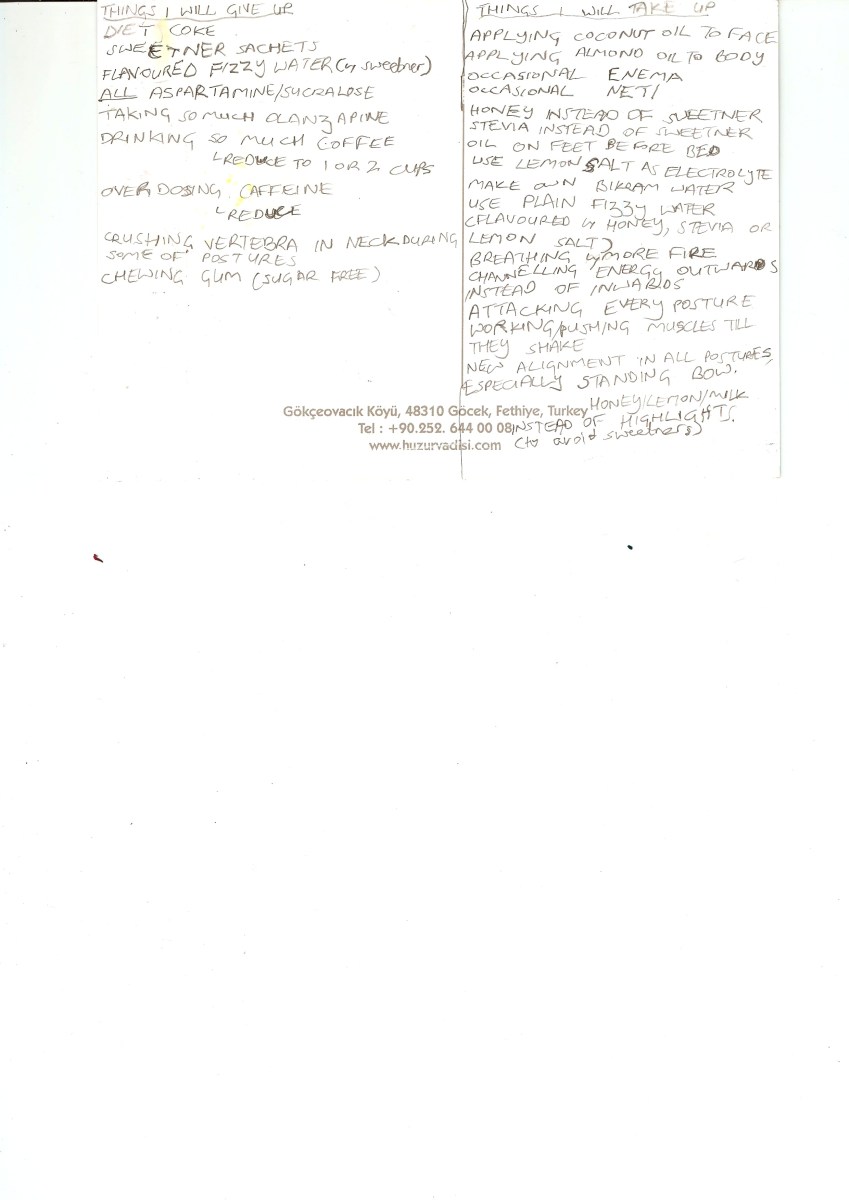 THINGS I WILL GIVE UP
DIET COKE
SWEETNER SACHETS
FLAVOURED FIZZY WATER (w sweetner)
ALL ASPARTAMINE/SUCRALOSE
TAKING SO MUCH OLANZAPINE
DRINKING SO MUCH COFFEE
↳REDUCE TO 1 OR 2 CUPS
OVERDOSING CAFFEINE
↳REDUCE
CRUSHING VERTEBRA IN NECK DURING
SOME OF POSTURES
CHEWING GUM (SUGAR FREE)
THINGS I WILL TAKE UP
APPLYING COCONUT OIL TO FACE
APPLYING ALMOND OIL TO BODY
OCCASIONAL ENEMA
OCCASIONAL NETI
HONEY INSTEAD OF SWEETNER
STEVIA INSTEAD OF SWEETNER
OIL ON FEET BEFORE BED
USE LEMON SALT AS ELECTROLYTE
MAKE OWN BIKRAM WATER
USE PLAIN FIZZY WATER
(FLAVOURED w HONEY, STEVIA OR
LEMON SALT)
BREATHING w MORE FIRE
CHANNELLING ENERGY OUTWARDS
INSTEAD OF INWARDS
ATTACKING EVERY POSTURE
WORKING/PUSHING MUSCLES TILL
THEY SHAKE
NEW ALIGNMENT IN ALL POSTURES,
ESPECIALLY STANDING BOW.
HONEY/LEMON/MILK
INSTEAD OF HIGHLIGHTS.
(to avoid sweetners)
Gökçeovacık Köyü, 48310 Göcek, Fethiye, Turkey
Tel : +90.252. 644 00 08
www.huzurvadisi.com